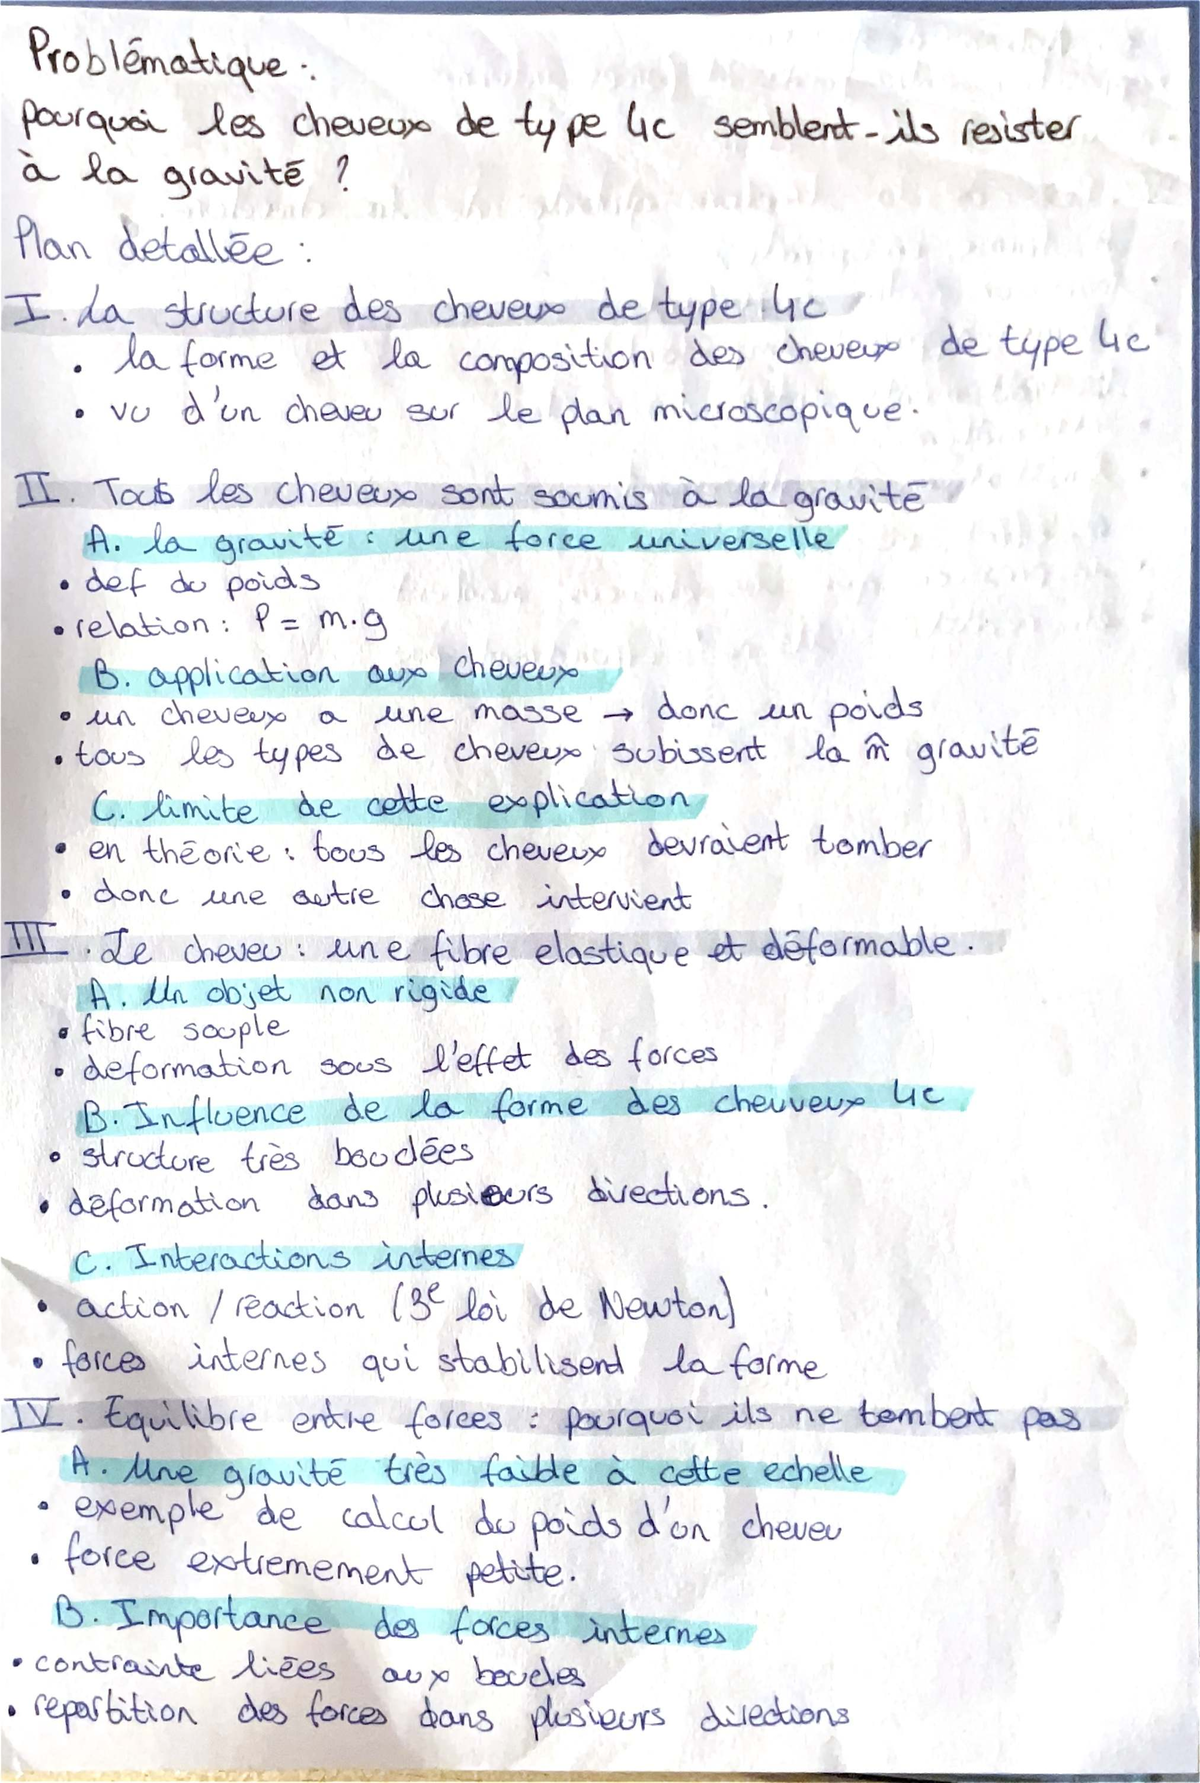 Problématique :
pourquoi les cheveux de type 4c semblent-ils resister
à la gravité ?
Plan detallée :
I. La structure des cheveux de type 4c
• la forme et la composition des cheveux de type 4c
• vu d'un cheveu sur le plan microscopique.
II. Tous les cheveux sont soumis à la gravité
A. la gravité : une force universelle
• def du poids
• relation : P = m.g
B. application aux cheveux
• un cheveux a une masse → donc un poids
• tous les types de cheveux subissent la m̂ gravité
C. limite de cette explication
• en théorie : tous les cheveux devraient tomber
• donc une autre chose intervient
III. Le cheveu : une fibre elastique et déformable.
A. Un objet non rigide
• fibre souple
• deformation sous l'effet des forces
B. Influence de la forme des cheuveux 4c
• structure très bouclées
• déformation dans plusieurs directions.
C. Interactions internes
• action / réaction (3e loi de Newton)
• forces internes qui stabilisent la forme
IV. Equilibre entre forces : pourquoi ils ne tombent pas
A. Une gravité très faible à cette echelle
• exemple de calcul du poids d'un cheveu
• force extremement petite.
B. Importance des forces internes
• contrainte liées aux boucles
• repartition des forces dans plusieurs directions